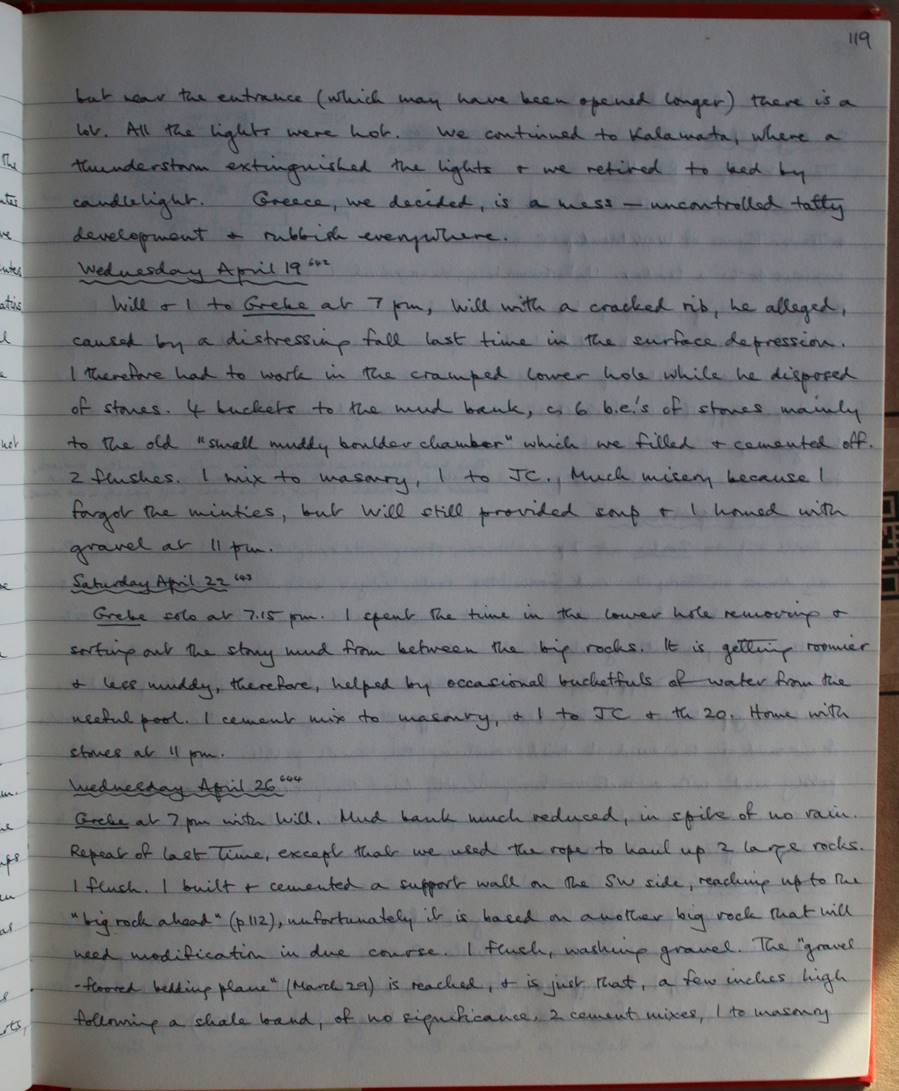 119
but near the entrance (which may have been opened longer) there is a
lot. All the lights were hot. We continued to Kalamata, where a
thunderstorm extinguished the lights + we retired to bed by
candlelight. Greece, we decided, is a mess — uncontrolled tatty
development + rubbish everywhere.
Wednesday April 19 642
Will + I to Grebe at 7 pm, Will with a cracked rib, he alleged,
caused by a distressing fall last time in the surface depression.
I therefore had to work in the cramped lower hole while he disposed
of stones. 4 buckets to the mud bank, c. 6 b.e.'s of stones mainly
to the old "small muddy boulder chamber" which we filled + cemented off.
2 flushes. 1 mix to masonry, 1 to JC. Much misery because I
forgot the minties, but Will still provided soup + I homed with
gravel at 11 pm.
Saturday April 22 643
Grebe solo at 7.15 pm. I spent the time in the lower hole removing +
sorting out the stony mud from between the big rocks. It is getting roomier
+ less muddy, therefore, helped by occasional bucketfuls of water from the
useful pool. 1 cement mix to masonry, + 1 to JC + th 20. Home with
stones at 11 pm.
Wednesday April 26 644
Grebe at 7 pm with Will. Mud bank much reduced, in spite of no rain.
Repeat of last time, except that we used the rope to haul up 2 large rocks.
1 flush. I built + cemented a support wall on the SW side, reaching up to the
"big rock ahead" (p112), unfortunately it is based on another big rock that will
need modification in due course. 1 flush, washing gravel. The "gravel
-floored bedding plane" (March 29) is reached, + is just that, a few inches high
following a shale band, of no significance. 2 cement mixes, 1 to masonry